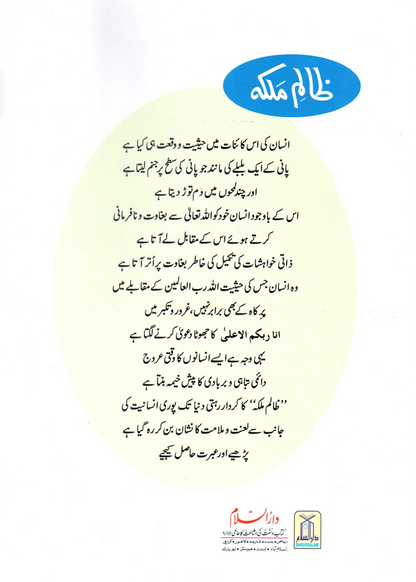 ظالم ملکہ
انسان کی اس کائنات میں حیثیت و وقعت ہی کیا ہے
پانی کے ایک بلبلے کی مانند جو پانی کی سطح پر جنم لیتا ہے
اور چند لمحوں میں دم توڑ دیتا ہے
اس کے باوجود انسان خود کو اللہ تعالیٰ سے بغاوت و نافرمانی
کرتے ہوئے اس کے مقابل لے آتا ہے
ذاتی خواہشات کی تکمیل کی خاطر بغاوت پر اتر آتا ہے
وہ انسان جس کی حیثیت اللہ رب العالمین کے مقابلے میں
پرکاہ کے بھی برابر نہیں، غرور و تکبر میں
انا ربکم الاعلیٰ کا جھوٹا دعویٰ کرنے لگتا ہے
یہی وجہ ہے ایسے انسانوں کا وقتی عروج
دائمی تباہی و بربادی کا پیش خیمہ بنتا ہے
”ظالم ملکہ“ کا کردار رہتی دنیا تک پوری انسانیت کی
جانب سے لعنت و ملامت کا نشان بن کر رہ گیا ہے
پڑھیے اور عبرت حاصل کیجیے
دارالسلام
کتاب و سنت کی اشاعت کا عالمی ادارہ
ریاض • جدہ • شارجہ • لاہور • کراچی
اسلام آباد • لندن • ہیوسٹن • نیویارک
دارالسلام
DARUSSALAM